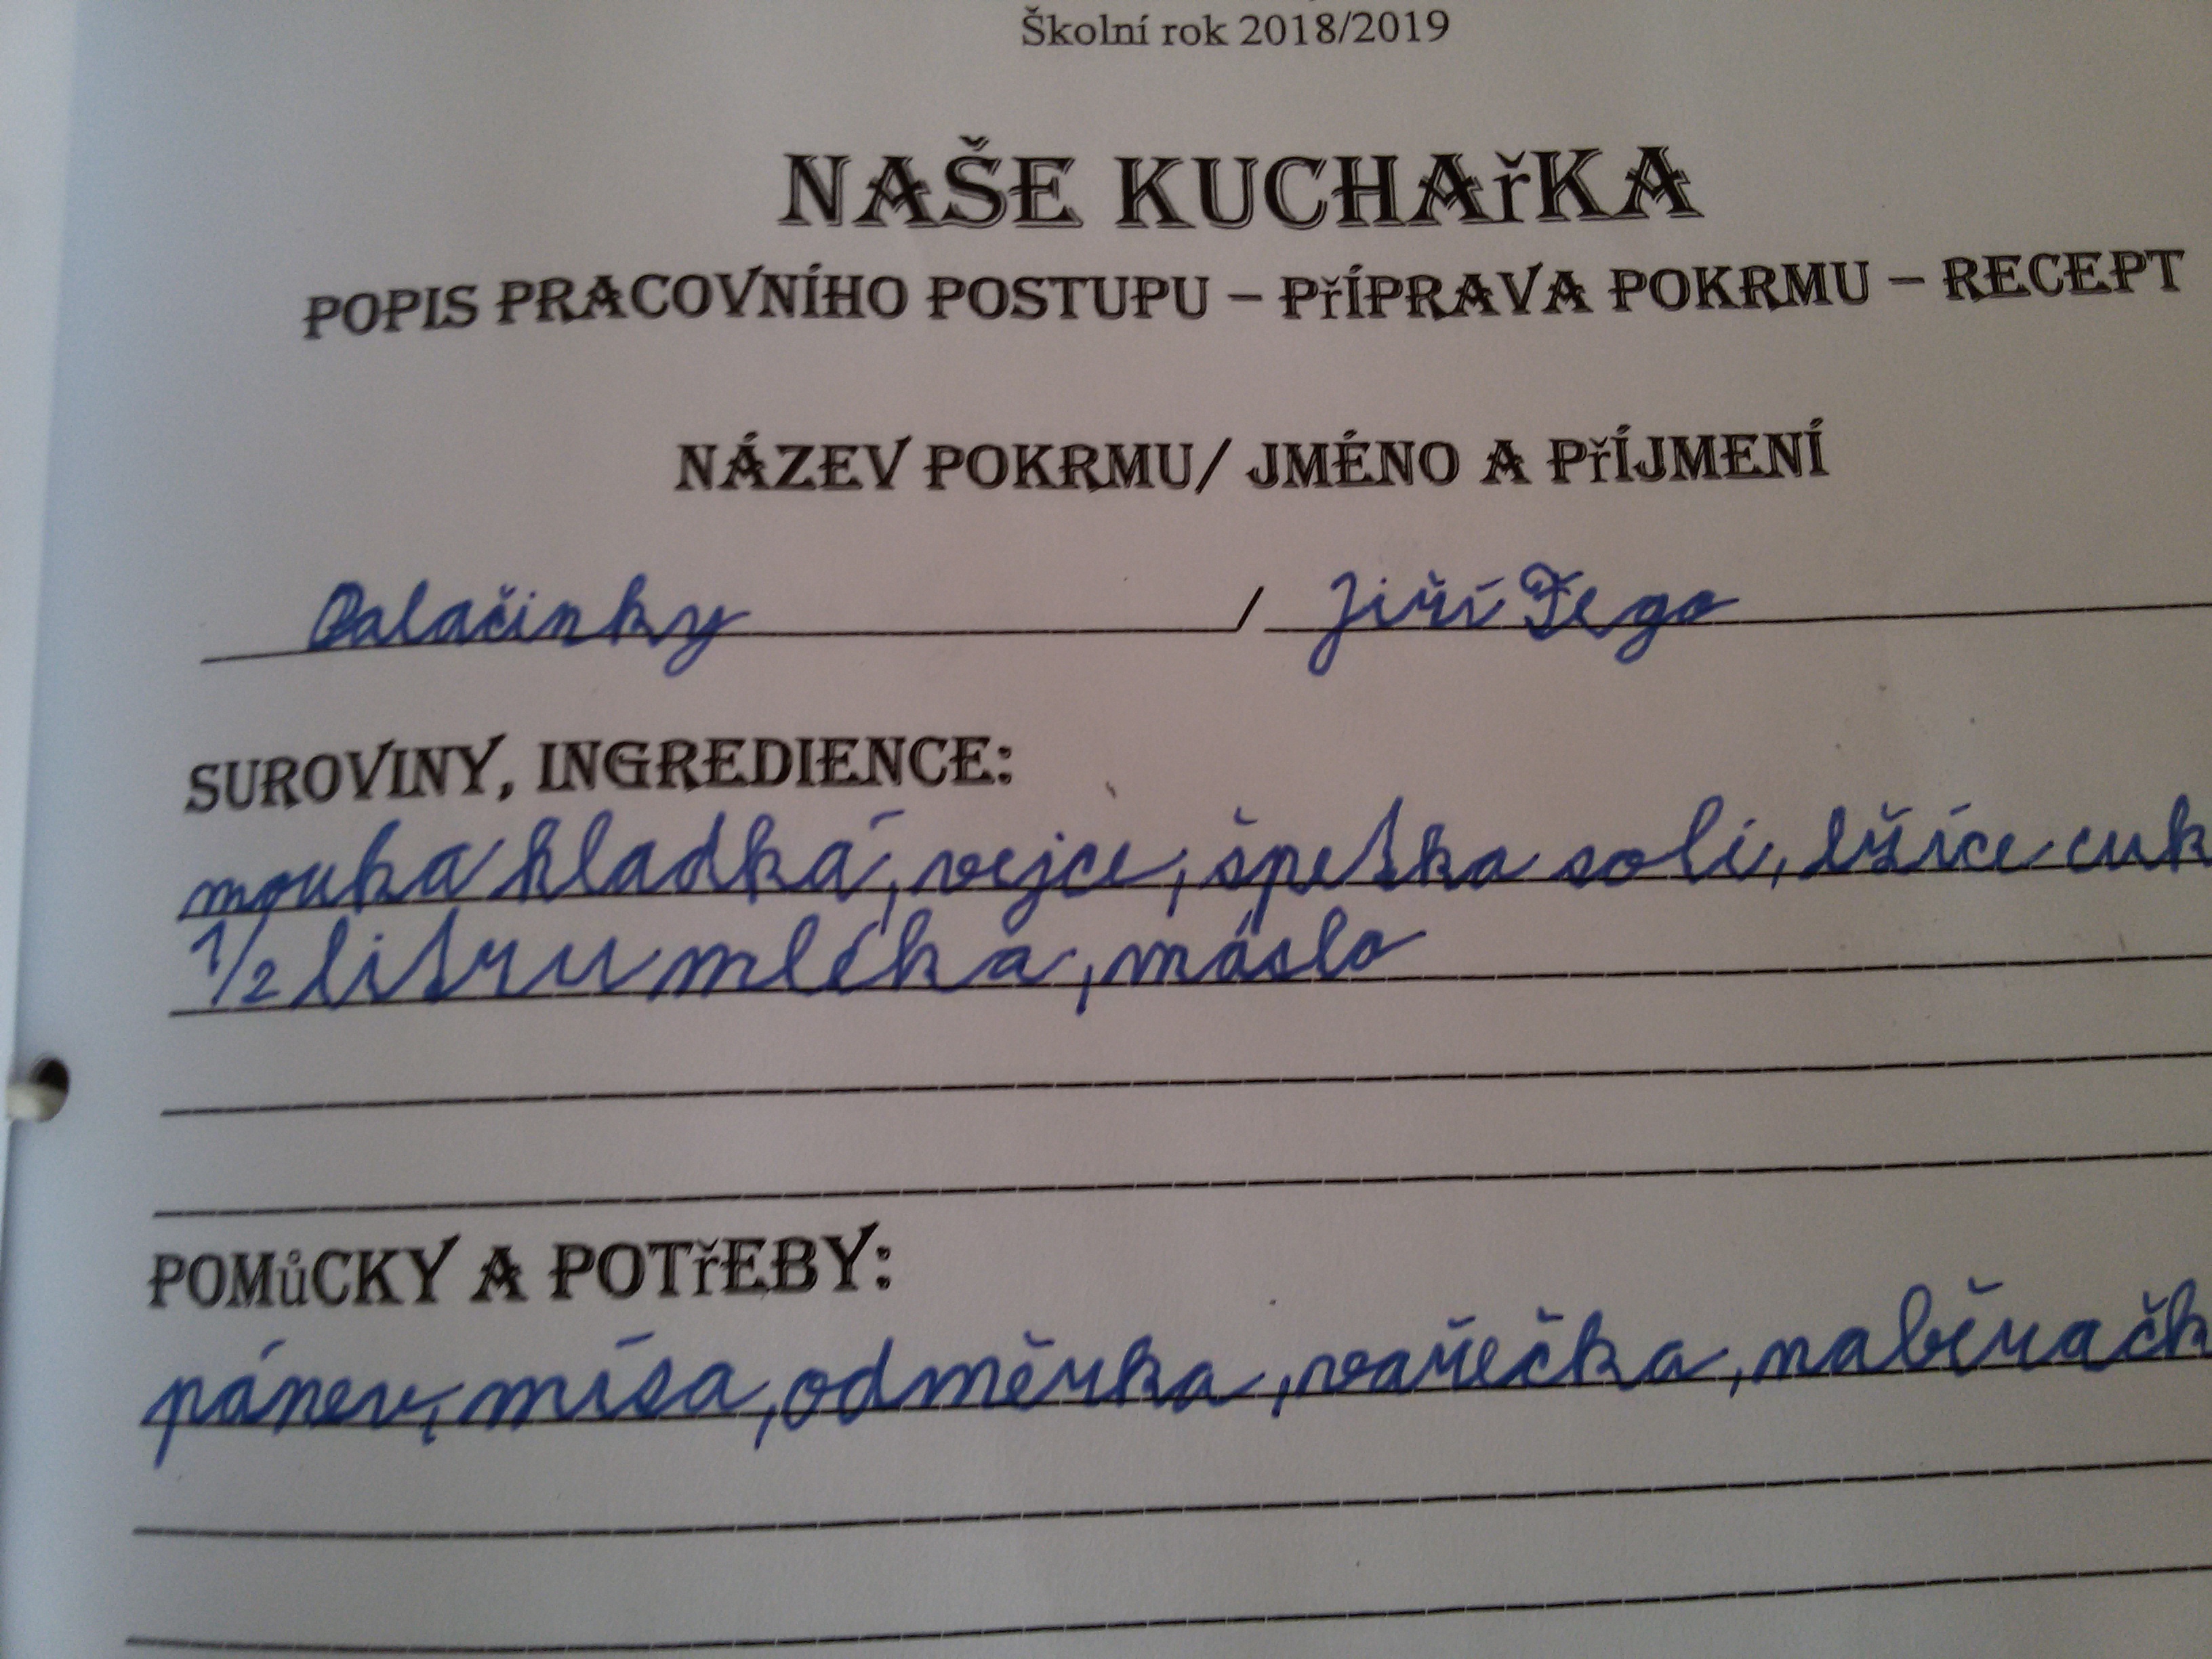 Školní rok 2018/2019
NAŠE KUCHAřKA
POPIS PRACOVNÍHO POSTUPU – PřÍPRAVA POKRMU – RECEPT
NÁZEV POKRMU/ JMÉNO A PřÍJMENÍ
Palačinky / Jiří
SUROVINY, INGREDIENCE:
mouka hladká, vejce, špetka soli, lžíce cuk
1/2 litru mléka, máslo
POMůCKY A POTřEBY:
pánev, mísa, odměrka, vařečka, naběračk